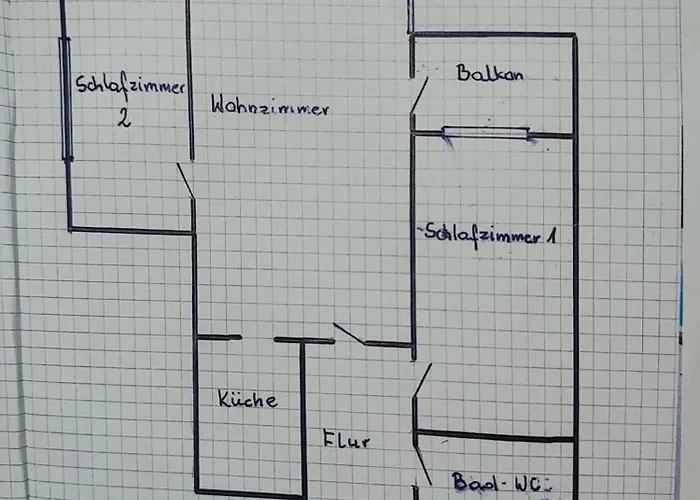 Balkon
Schlafzimmer
2
Wohnzimmer
Schlafzimmer 1
Küche
Flur
Bad-WC